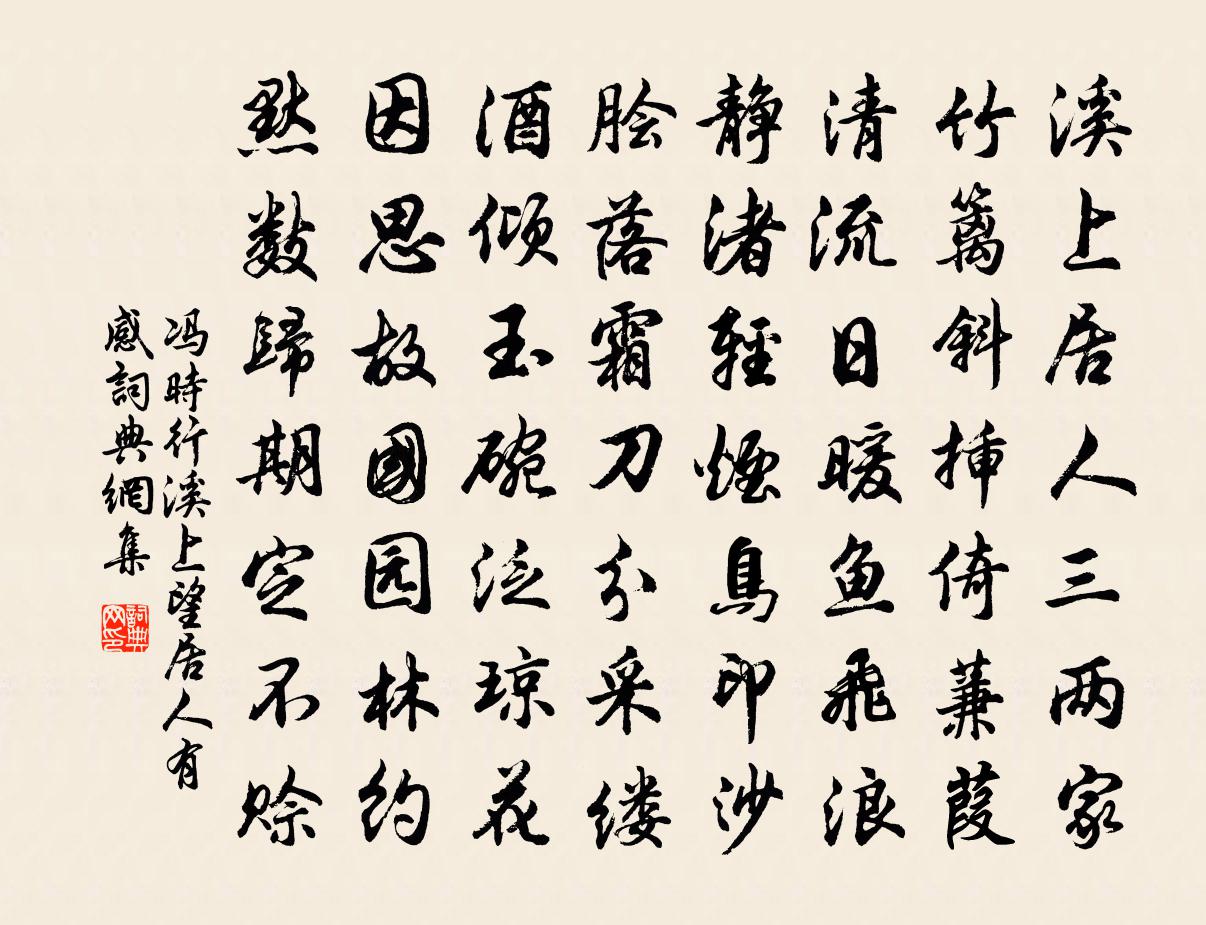 溪上居人三两家
竹篱斜插倚蒹葭
清流日暖鱼飛浪
静渚輕煙鳥印沙
脍落霜刀分采缕
酒倾玉碗泛琼花
因思故國园林约
默数歸期定不赊
冯時行溪上望居人有
感詞典網集
詞典网印